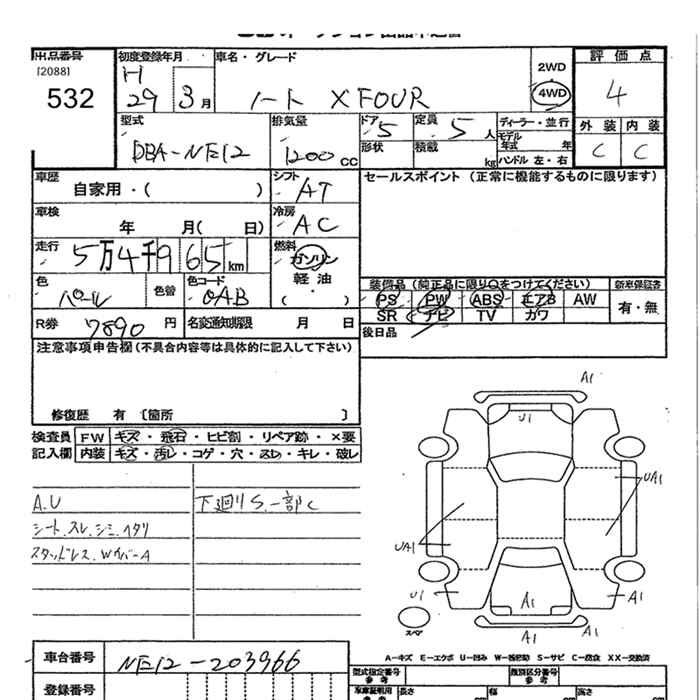 出品番号
(2088)
532
初度登録年月
H
29 3月
車名・グレード
ノート X FOUR
2WD
4WD
評価点
4
型式
DBA-NE12
排気量
1200 cc
ドア 5
形状
定員 5人
積載 kg
ディーラー・並行
モデル年式 年
ハンドル 左・右
外装 内装
C C
車歴
自家用・( )
シフト AT
車検
年 月( 日)
冷房 AC
走行
5万4千965km
燃料
ガソリン
軽油
( )
色
パール
色替
色コード
QAB
R券 7890円
名変通知期限 月 日
セールスポイント (正常に機能するものに限ります)
装備品 (純正品に限り○をつけてください)
PS PW ABS エアB AW
SR ナビ TV カワ
新車保証書
有・無
後日品
注意事項申告欄 (不具合内容等は具体的に記入して下さい)
修復歴 有 〔箇所 〕
検査員記入欄
FW キズ・飛石・ヒビ割・リペア跡・×要
内装 キズ・汚レ・コゲ・穴・スレ・キレ・破レ
A.U
シート、スレ、シミ、ヘタリ
スタッドレス、Wウバ-A
下廻りS、一部C
A1
U1
UA1
UA1
U1
A1
A1
A1
A1
スペア
A-キズ E-エクボ U-凹み W-補修跡 S-サビ C-腐食 XX-交換済
車台番号
NE12-203966
登録番号
型式指定番号
参考
類別区分番号
参考
長さ cm
幅 cm
高さ cm